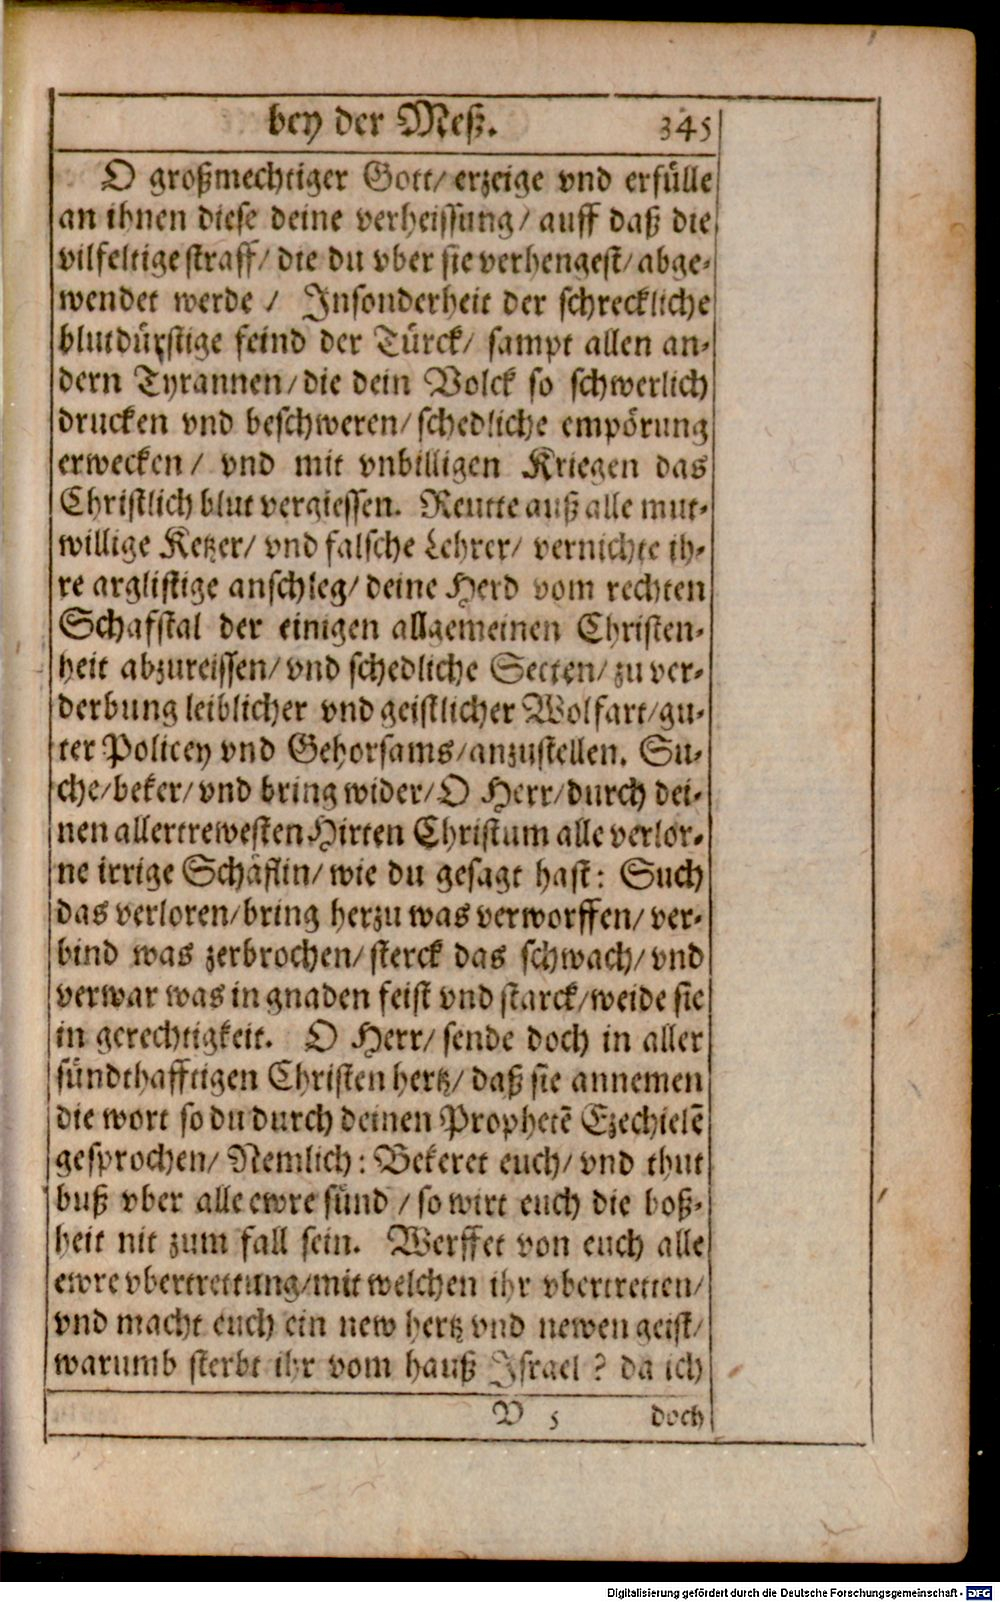 bey der Meß. 345
O großmechtiger Gott/ erzeige vnd erfülle
an ihnen diese deine verheissung/ auff daß die
vilfeltige straff/ die du vber sie verhengest/ abge-
wendet werde / Insonderheit der schreckliche
blutdürstige feind der Türck/ sampt allen an-
dern Tyrannen/ die dein Volck so schwerlich
drucken vnd beschweren/ schedliche empörung
erwecken/ vnd mit vnbilligen Kriegen das
Christlich blut vergiessen. Reutte auß alle mut-
willige Ketzer/ vnd falsche Lehrer/ vernichte ih-
re arglistige anschleg/ deine Herd vom rechten
Schafstal der einigen allgemeinen Christen-
heit abzureissen/ vnd schedliche Secten/ zu ver-
derbung leiblicher vnd geistlicher Wolfart/ gu-
ter Policey vnd Gehorsams/ anzustellen. Su-
che/ beker/ vnd bring wider/ O Herr/ durch dei-
nen allertrewesten Hirten Christum alle verlor-
ne irrige Schäflin/ wie du gesagt hast: Such
das verloren/ bring herzu was verworffen/ ver-
bind was zerbrochen/ sterck das schwach/ vnd
verwar was in gnaden feist vnd starck/ weide sie
in gerechtigkeit. O Herr/ sende doch in aller
sündthafftigen Christen hertz/ daß sie annemen
die wort so du durch deinen Prophetē Ezechielē
gesprochen/ Nemlich: Bekeret euch/ vnd thut
buß vber alle ewre sünd / so wirt euch die boß-
heit nit zum fall sein. Werffet von euch alle
ewre vbertrettung/ mit welchen ihr vbertretten/
vnd macht euch ein new hertz vnd newen geist/
warumb sterbt ihr vom hauß Israel? da ich
V 5 doch
Digitalisierung gefördert durch die Deutsche Forschungsgemeinschaft - DFG